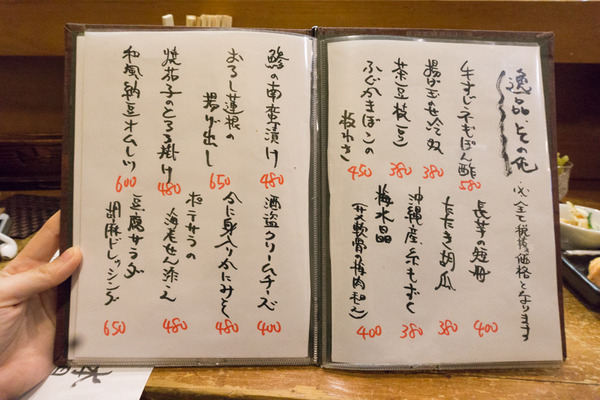 逸品その壱
※全て税抜価格となります
牛すじネギぽん酢
580
揚げ玉冷奴
380
茶豆枝豆
380
ふぐかまぼこの
板わさ
450
長芋の短冊
400
たたき胡瓜
380
沖縄産糸もずく
380
梅水晶
(サメ軟骨の梅肉和え)
400
鯵の南蛮漬け
480
おろし蓮根の
揚げ出し
650
焼茄子のとろろ掛け
480
和風納豆オムレツ
600
酒盗クリームチーズ
400
かに身入りかにみそ
480
ポテサラの
海老せん添え
480
豆腐サラダ
胡麻ドレッシング
650